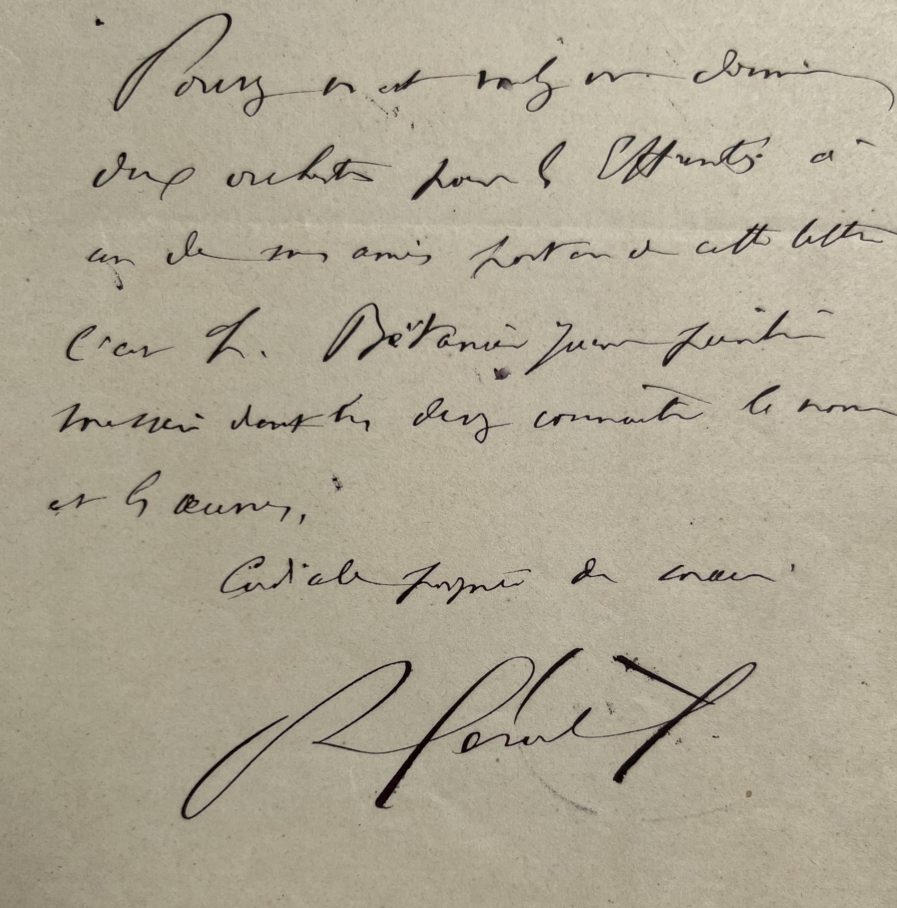 Pouvez vous et voulez vous donner
deux orchestres pour les Effrontés à
un de mes amis portant de cette lettre
C'est M. Bétanier jeune peintre
messin dont tu dois connaître le nom
et les œuvres,
Cordiale poignée de main